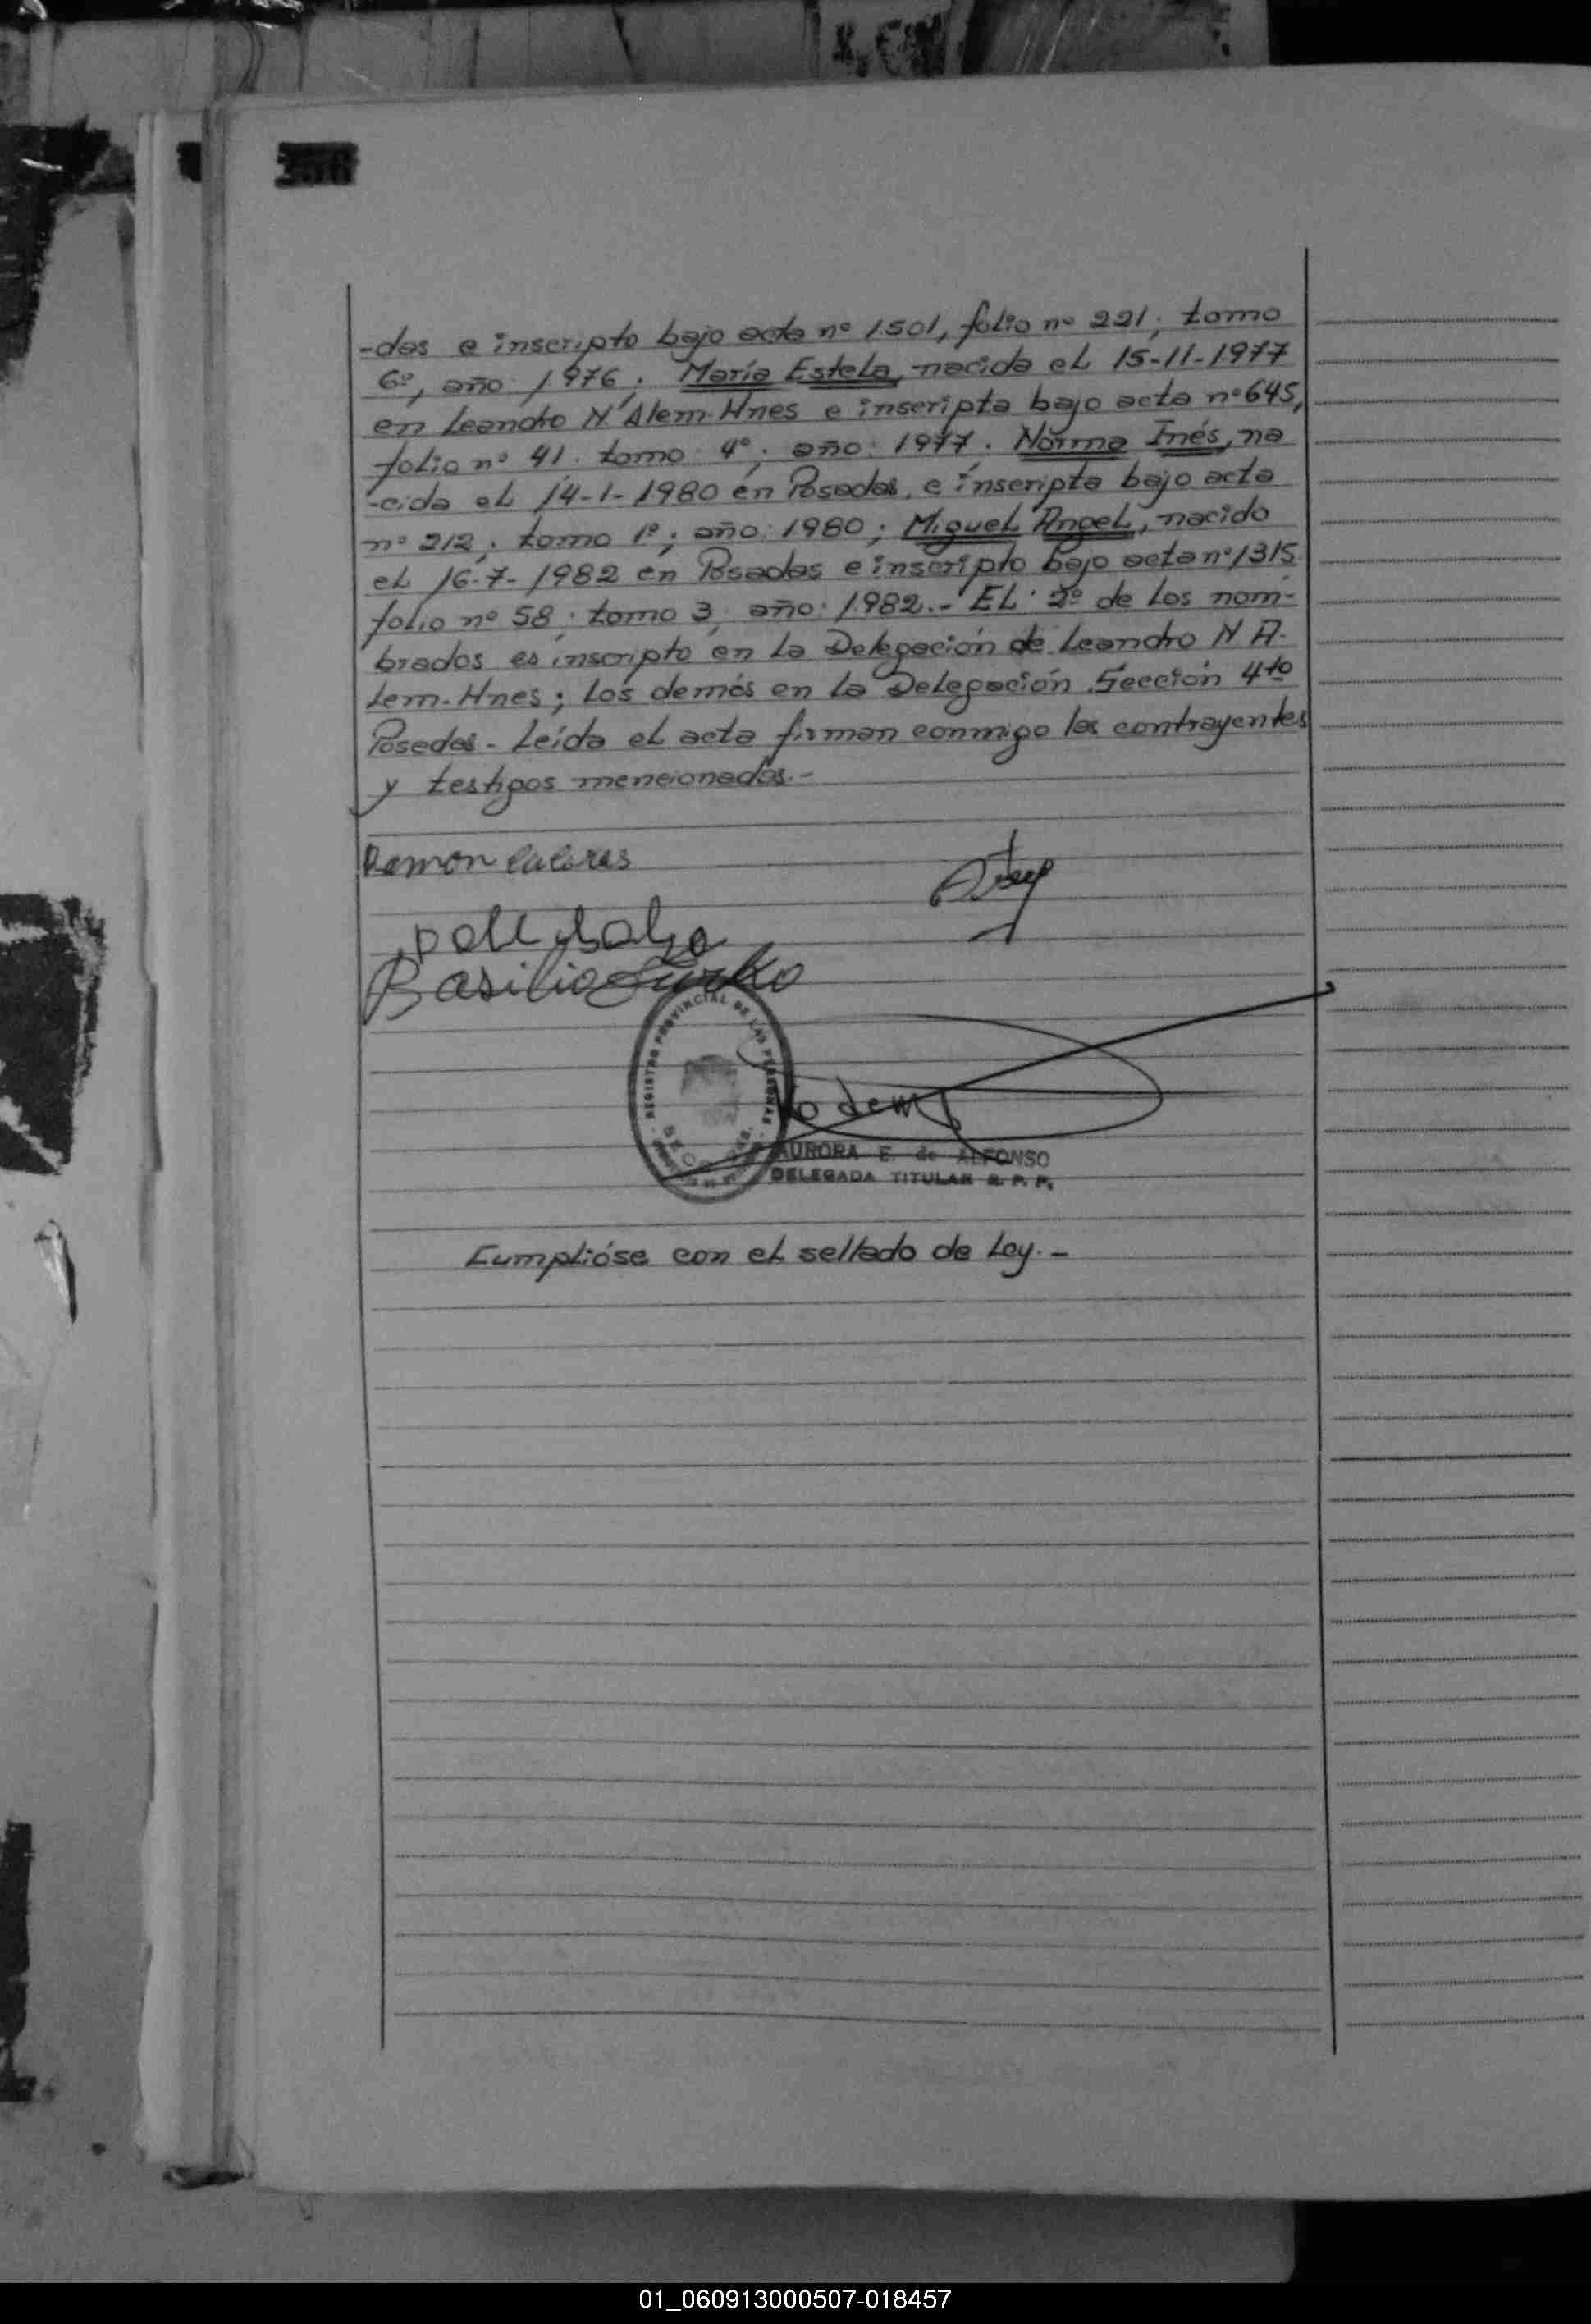 -das e inscripto bajo acta nº 1501, folio nº 221; tomo
6º, año 1976; María Estela, nacida el 15-11-1977
en Leandro N Alem-Mnes e inscripta bajo acta nº 645,
folio nº 41. tomo 4º; año: 1977. Norma Inés, na
-cida el 14-1-1980 en Posadas, e inscripta bajo acta
nº 212; tomo 1º; año: 1980; Miguel Angel, nacido
el 16-7-1982 en Posadas e inscripto bajo acta nº 1315
folio nº 58; tomo 3; año: 1982.- El 2º de los nom-
brados es inscripto en la Delegación de Leandro N A-
lem-Mnes; los demás en la Delegación Sección 4ta
Posadas - Leída el acta firman conmigo los contrayentes
y testigos mencionados.-
Ramon
Basilio Zurko
REGISTRO PROVINCIAL DE LAS PERSONAS
AURORA E. de ALFONSO
DELEGADA TITULAR R. P. P.
Cumplióse con el sellado de Ley.-
01_060913000507-018457